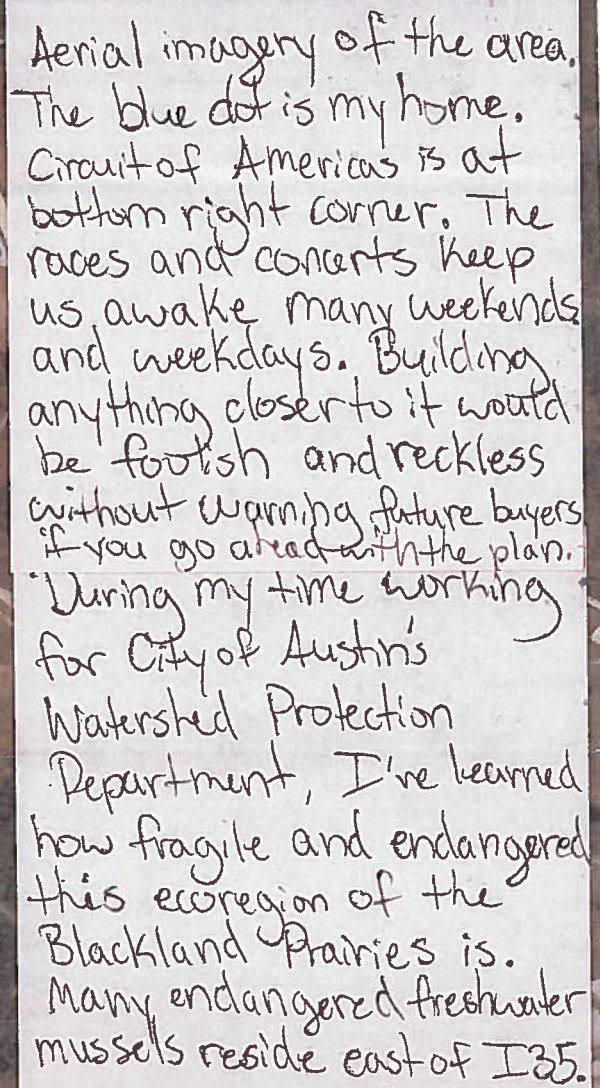 Aerial imagery of the area.
The blue dot is my home.
Circuit of Americas is at
bottom right corner. The
races and concerts keep
us awake many weekends
and weekdays. Building
anything closer to it would
be foolish and reckless
without warning future buyers
if you go ahead with the plan.
During my time working
for City of Austin's
Watershed Protection
Department, I've learned
how fragile and endangered
this ecoregion of the
Blackland Prairies is.
Many endangered freshwater
mussels reside east of I35.